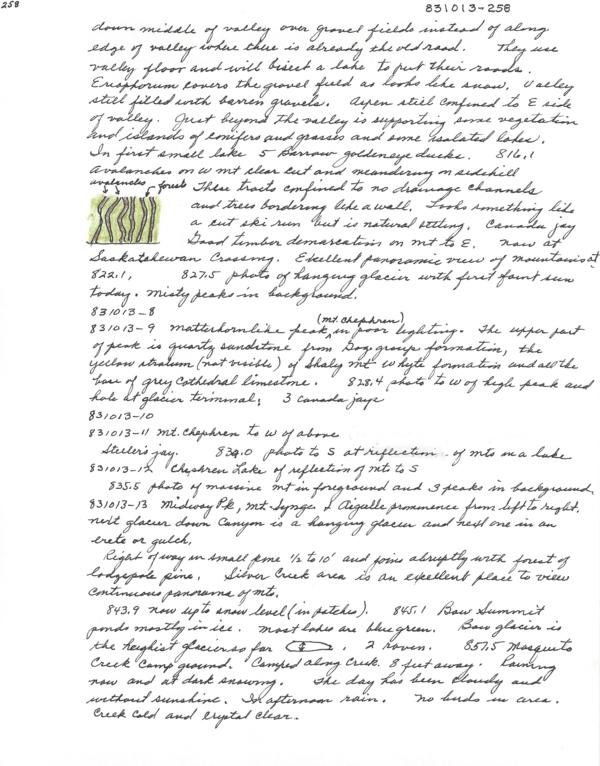 258
831013-258
down middle of valley over gravel fields instead of along
edge of valley where there is already the old road. They use
valley floor and will bisect a lake to put their roads.
Eriophorum covers the gravel field as looks like snow. Valley
still filled with barren gravels. Aspen still confined to E side
of valley. Just beyond the valley is supporting some vegetation
and islands of conifers and grasses and some isolated lakes.
In first small lake 5 Barrow goldeneye ducks. 816.1
Avalanches on W mt clear cut and meandering on sidehill
avalanches forest These tracts confined to no drainage channels
and trees bordering like a wall. Looks something like
a cut ski run but is natural setting. Canada jay
Good timber demarcation on mt to E. Now at
Saskatchewan Crossing. Excellent panoramic view of mountains at
822.1, 827.5 photo of hanging glacier with first faint sun
today. Misty peaks in background.
831013-8
831013-9 Matterhornlike peak (Mt. Chephren) in poor lighting. The upper part
of peak is quartz sandstone from Gog group formation, the
yellow stratum (not visible) of shaly Mt Whyte formation and all the
base of grey Cathedral limestone. 828.4 photo to W of high peak and
hole at glacier terminal; 3 Canada jays
831013-10
831013-11 Mt. Chephren to W of above
Steller's jay. 830.0 photo to S at reflection of mts on a lake
831013-12 Chephren Lake of reflection of mts to S
835.5 photo of massive mt in foreground and 3 peaks in background.
831013-13 Midway Pk, Mt. Synge & Aiguille prominence from left to right.
next glacier down Canyon is a hanging glacier and next one in an
or gulch.
Right of way in small pine ½ to 10' and joins abruptly with forest of
lodgepole pine. Silver Creek area is an excellent place to view
continuous panorama of mts.
843.9 now up to snow level (in patches). 845.1 Bow Summit
ponds mostly in ice. Most lakes are blue green. Bow glacier is
the heighist glacier so far . 2 raven. 857.5 Mosquito
Creek Camp ground. Camped along Creek 8 feet away. Raining
now and at dark snowing. The day has been cloudy and
without sunshine. In afternoon rain. No birds in area.
Creek cold and crystal clear.